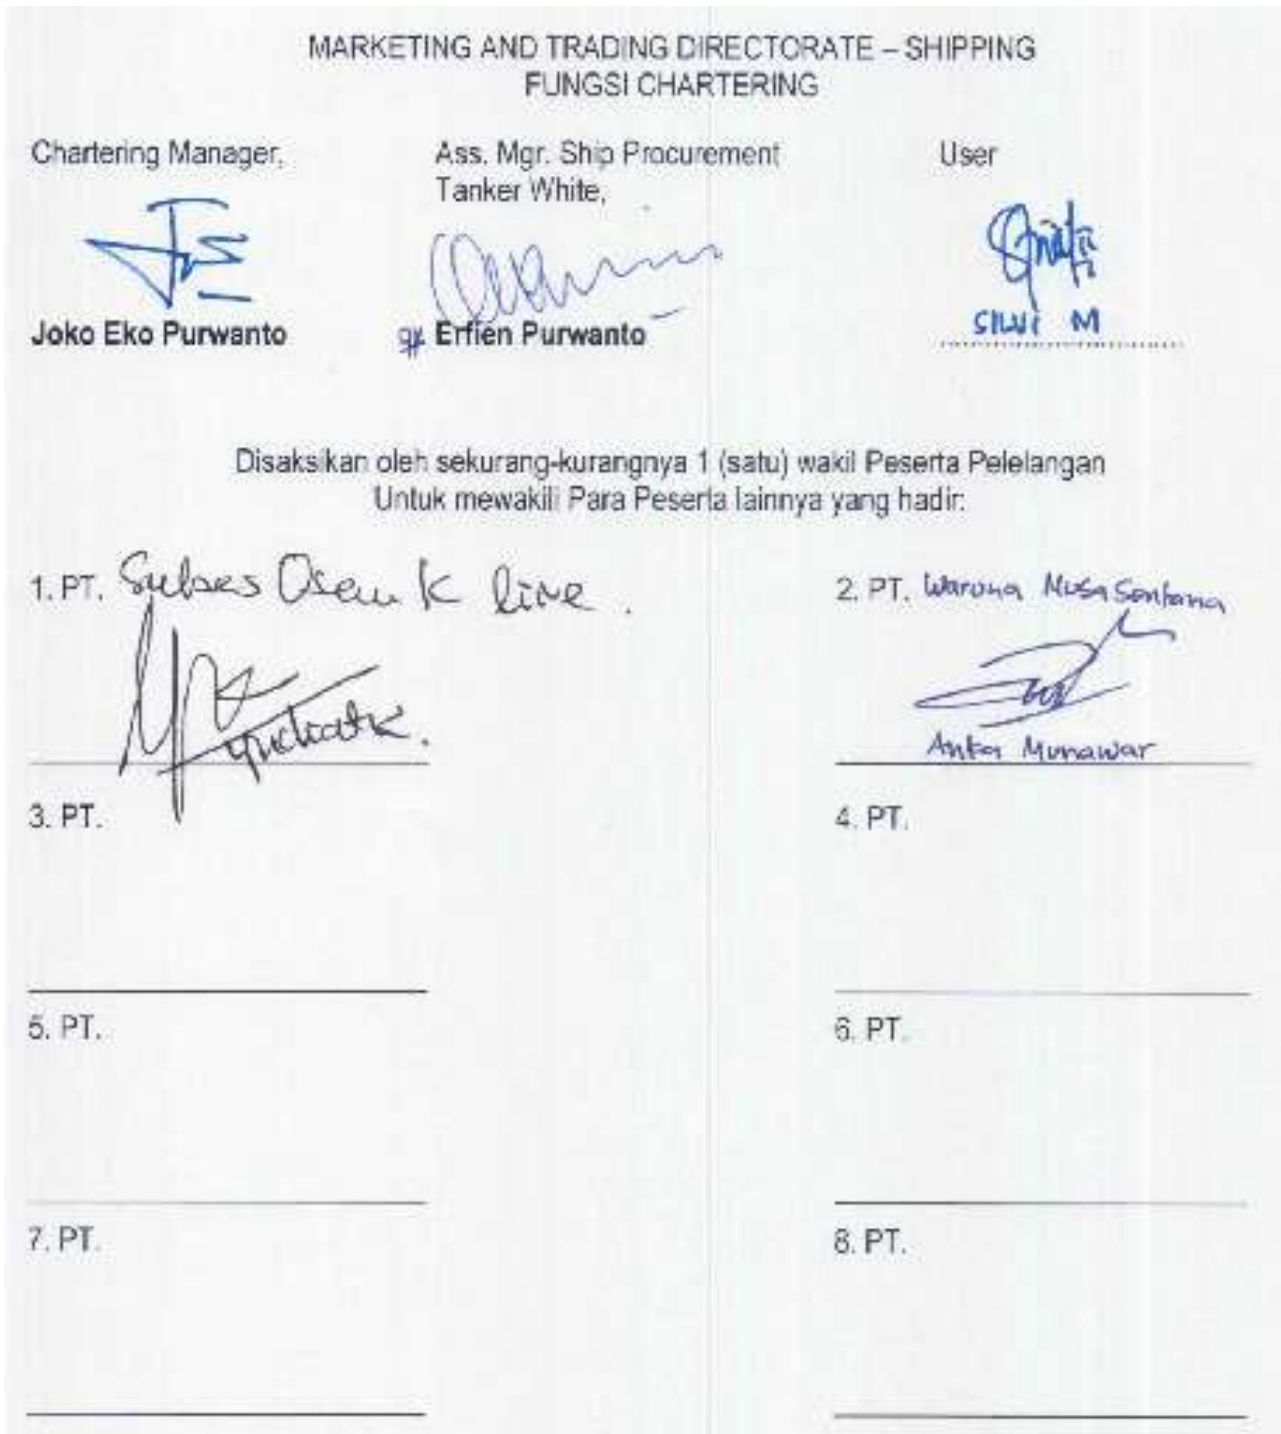 MARKETING AND TRADING DIRECTORATE – SHIPPING
FUNGSI CHARTERING
Chartering Manager,
Ass. Mgr. Ship Procurement
Tanker White,
User
Joko Eko Purwanto
Erfien Purwanto
SILVI M
Disaksikan oleh sekurang-kurangnya 1 (satu) wakil Peserta Pelelangan
Untuk mewakili Para Peserta lainnya yang hadir:
1. PT. Sukses Osean K line.
2. PT. Waruna Nusa Sentana
Anka Munawar
3. PT.
4. PT.
5. PT.
6. PT.
7. PT.
8. PT.